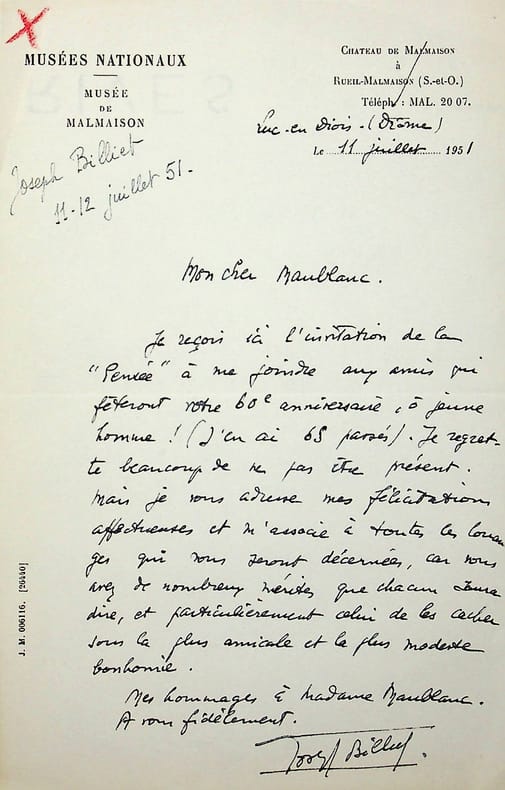 MUSÉES NATIONAUX
MUSÉE
DE
MALMAISON
CHATEAU DE MALMAISON
à
RUEIL-MALMAISON (S.-et-O.)
Téléph : MAL. 20 07.
Luc-en Diois - (Drôme)
Le 11 juillet 1951
Joseph Billiet
11-12 juillet 51 -
Mon cher Maublanc.
Je reçois ici l'invitation de la
"Pensée" à me joindre aux amis qui
fêteront votre 60e anniversaire, ô jeune
homme ! (J'en ai 65 passés). Je regret-
te beaucoup de ne pas être présent.
Mais je vous adresse mes félicitations
affectueuses et m'associe à toutes les louan
ges qui vous seront décernées, car vous
avez de nombreux mérites que chacun saura
dire, et particulièrement celui de les cacher
sous la plus amicale et la plus modeste
bonhomie.
Mes hommages à Madame Maublanc.
A vous fidèlement.
Joseph Billiet.
J. M. 006116. [26440]